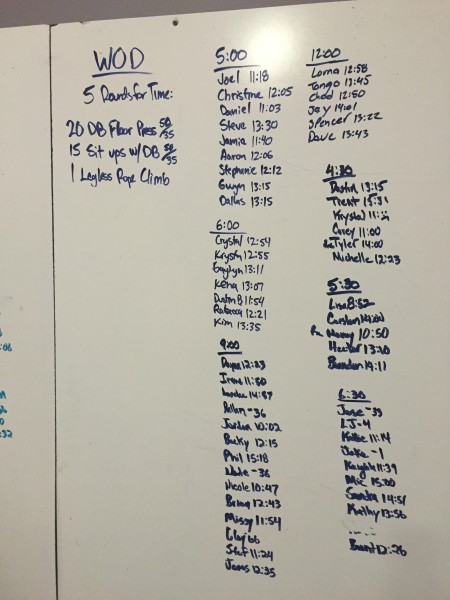 WOD
5 Rounds for Time:
20 DB Floor Press 50/35
15 Sit ups w/DB 50/35
1 Legless Rope Climb
5:00
Joel 11:18
Christine 12:05
Daniel 11:03
Steve 13:30
Jamie 11:40
Aaron 12:06
Stephanie 12:12
Gwyn 13:15
Dallas 13:15
6:00
Crystal 12:54
Krystn 12:55
Gaylyn 13:11
Kena 13:07
Dustin B 11:54
Rebecca 12:21
Kim 13:35
9:00
Irene 11:50
-36
Jordan 10:02
Becky 12:15
Phil 15:18
Nate -36
Nicole 10:47
Brian 12:43
Missy 11:54
Clay
Stef 11:24
James 12:35
12:00
Lorna 12:58
Tongo 13:45
Chad 12:50
Jay 14:01
Spencer 13:22
Dave 13:43
4:30
Dustin 13:15
Trent
Krystal
Corey 11:00
Tyler 14:00
Michelle 12:23
5:30
Lisa 8:52
Carston 14:00
10:50
Hector
Brandon 14:11
6:30
Jose -33
LJ -4
Katie 11:14
Jake -1
Kaylah 11:39
Mic 15:00
Sandra 14:51
Kathy 13:56
Brant 12:26